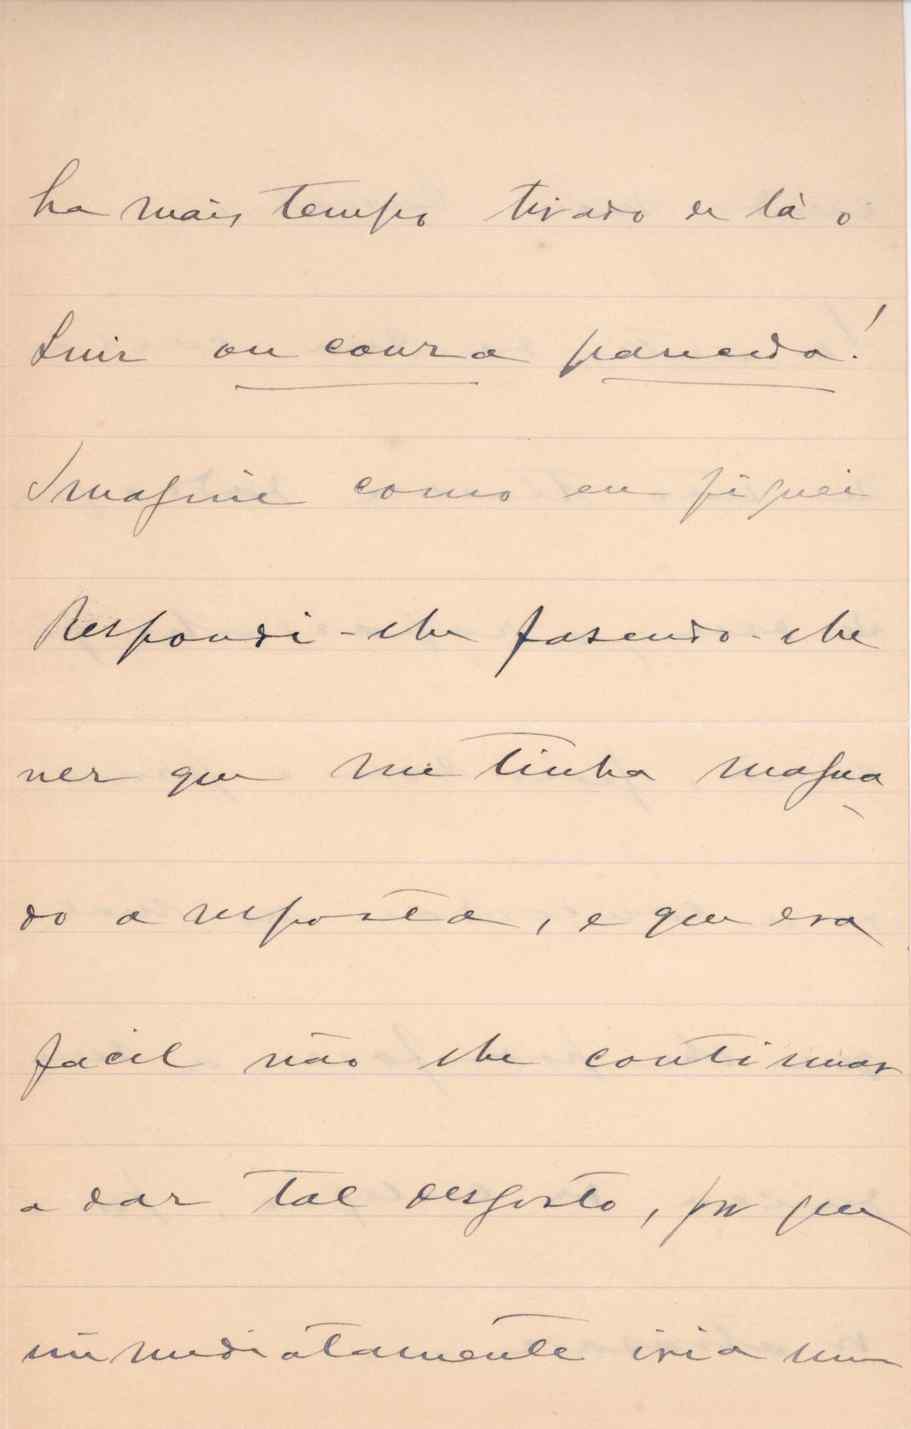 ha mais tempo tirado de lá o
Luiz ou couza parecida!
Imagine como eu fiquei
Respondi-lhe fasendo-lhe
ver que me tinha magua
do a resposta, e que era
facil não lhe continuar
a dar tal desgosto, por que
immediatamente iria